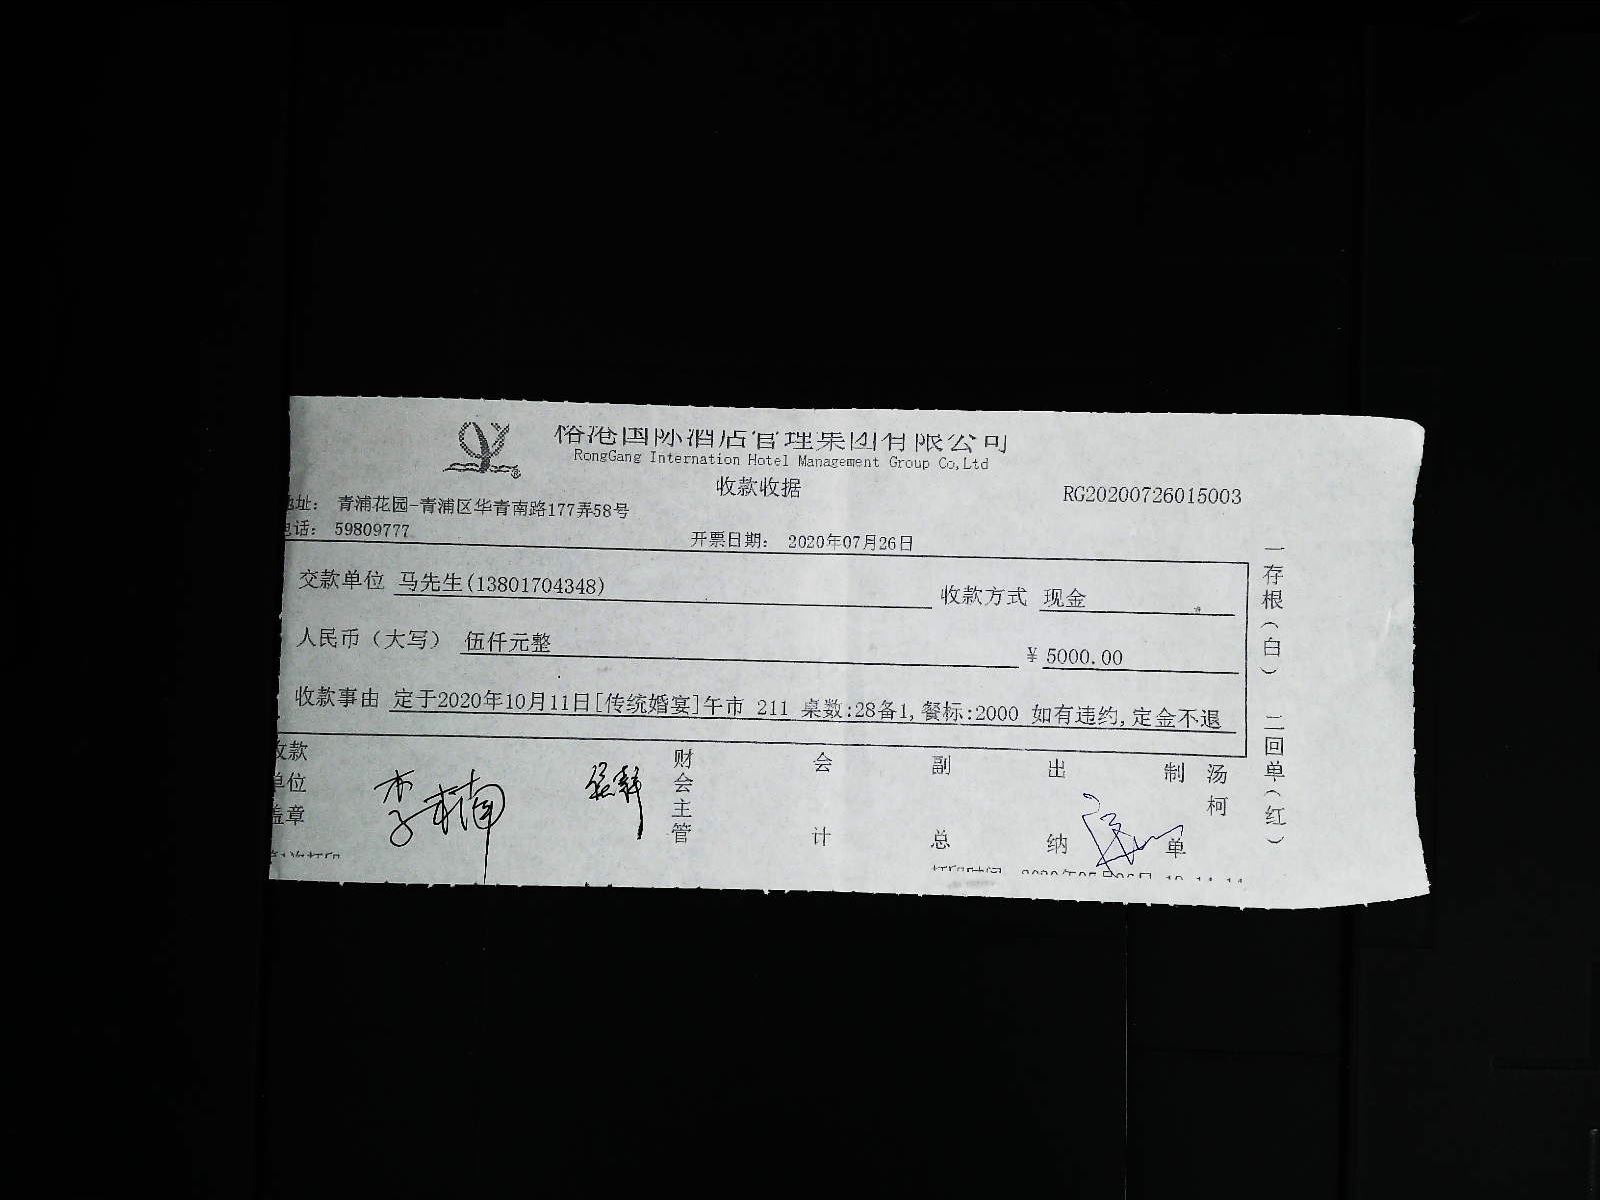 榕港国际酒店管理集团有限公司
RongGang Internation Hotel Management Group Co,Ltd
收款收据
RG20200726015003
地址： 青浦花园-青浦区华青南路177弄58号
电话： 59809777
开票日期： 2020年07月26日
交款单位 马先生(13801704348) 收款方式 现金
人民币（大写） 伍仟元整 ¥ 5000.00
收款事由 定于2020年10月11日[传统婚宴]午市 211 桌数:28备1,餐标:2000 如有违约,定金不退
收款单位盖章 财会主管 会计 副总 出纳 制单 汤柯
一存根（白） 二回单（红）